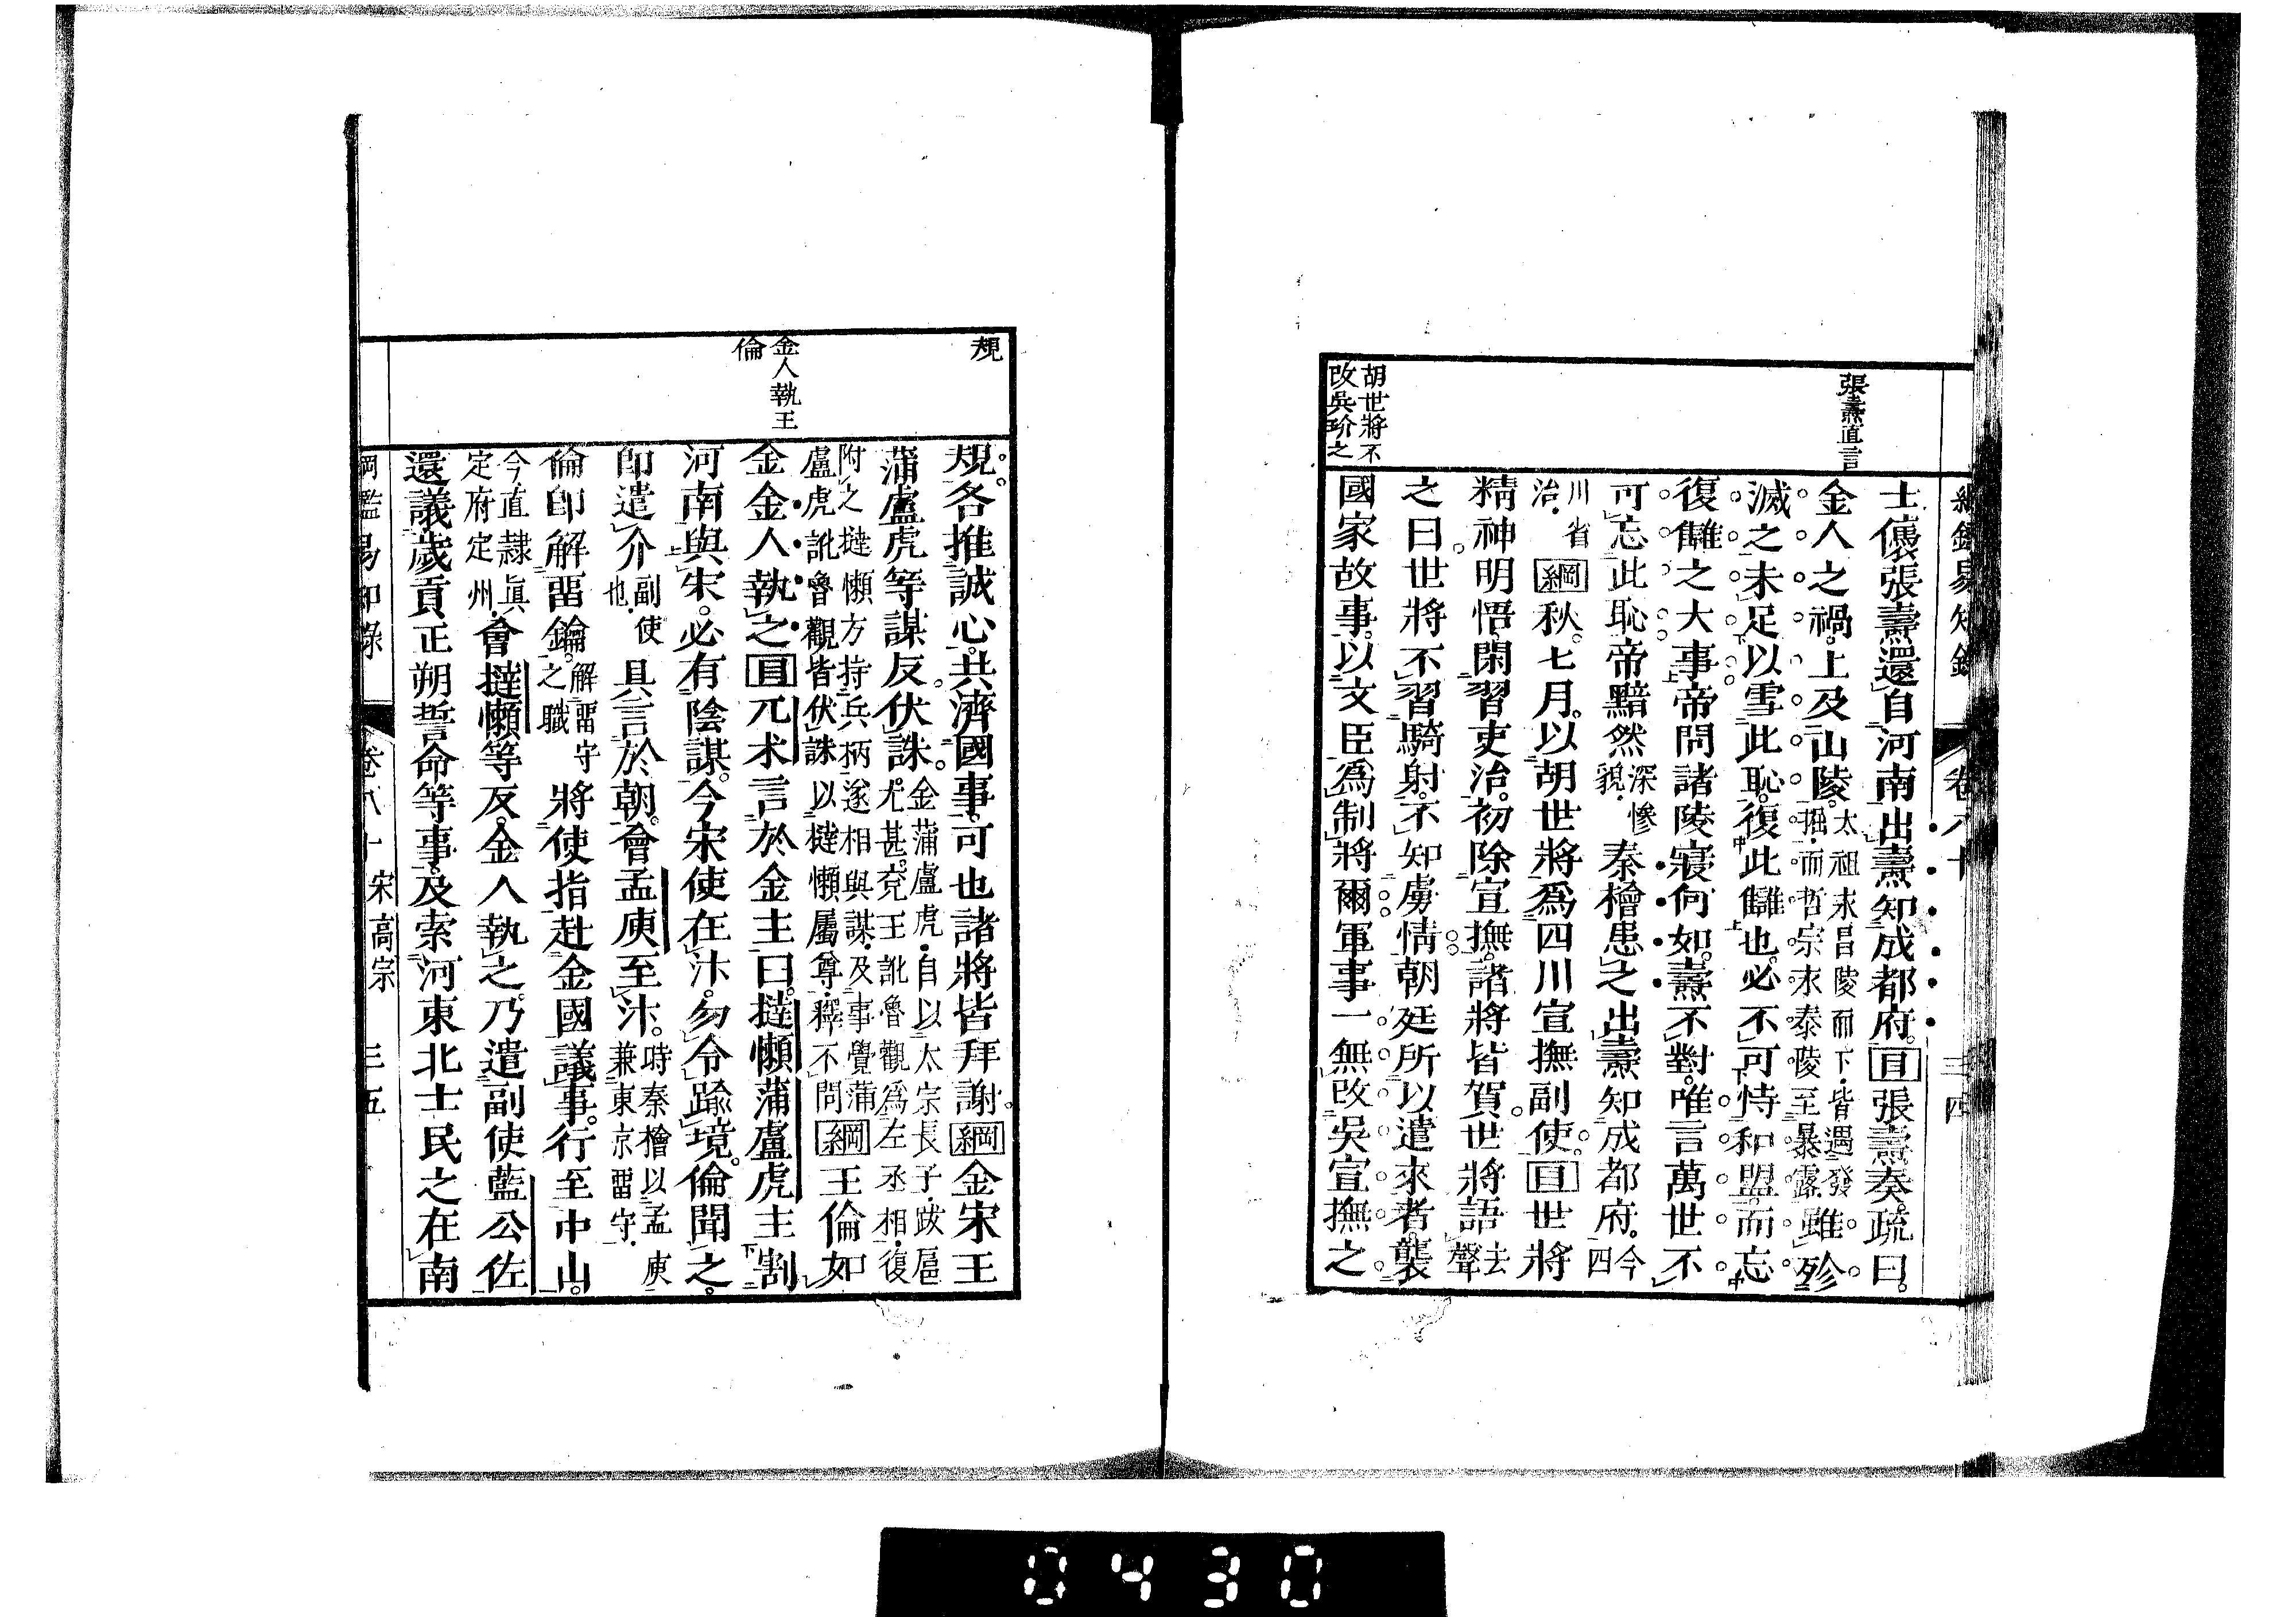 綱鑑易知錄 卷八十 三四
張燾直言
胡世將不
改吳玠之
士㒟張燾還自河南出燾知成都府。目張燾奏疏曰。
金人之禍。上及山陵。太祖永昌陵而下皆遇發
掘而哲宗永泰陵至暴露雖殄
滅之未足以雪此恥。復此讎也。必不可恃和盟而忘
復讎之大事。帝問諸陵寢何如。燾不對。唯言萬世不
可忘此恥。帝黯然深慘
貌秦檜患之出燾知成都府。今四
川省
治綱秋。七月。以胡世將爲四川宣撫副使。目世將
精神明悟。閑習吏治。初除宣撫。諸將皆賀。世將語去
聲
之曰。世將不習騎射。不知虜情。朝廷所以遣來者。襲
國家故事。以文臣爲制將爾。軍事一無改吳宣撫之
規
金人執王
倫
規。各推誠心。共濟國事。可也諸將皆拜謝。綱金宋王
蒲盧虎等謀反伏誅。金蒲盧虎自以太宗長子跋扈
尤甚。兗王訛魯觀爲左丞相復
附之撻懶方持兵柄遂相與謀及事覺蒲
盧虎訛魯觀皆伏誅以撻懶屬尊釋不問綱王倫如
金金人執之目兀朮言於金主曰。撻懶蒲盧虎主割
河南與宋。必有陰謀。今宋使在汴。勿令踰境。倫聞之。
卽遣介副使
也具言於朝。會孟庾至汴。時秦檜以孟庾
兼東京畱守
倫卽解畱鑰。解畱守
之職將使指赴金國議事。行至中山。
今直隸眞
定府定州會撻懶等反。金人執之。乃遣副使藍公佐
還議歲貢正朔誓命等事。及索河東北士民之在南
綱鑑易知錄 卷八十 宋高宗 三五
0430